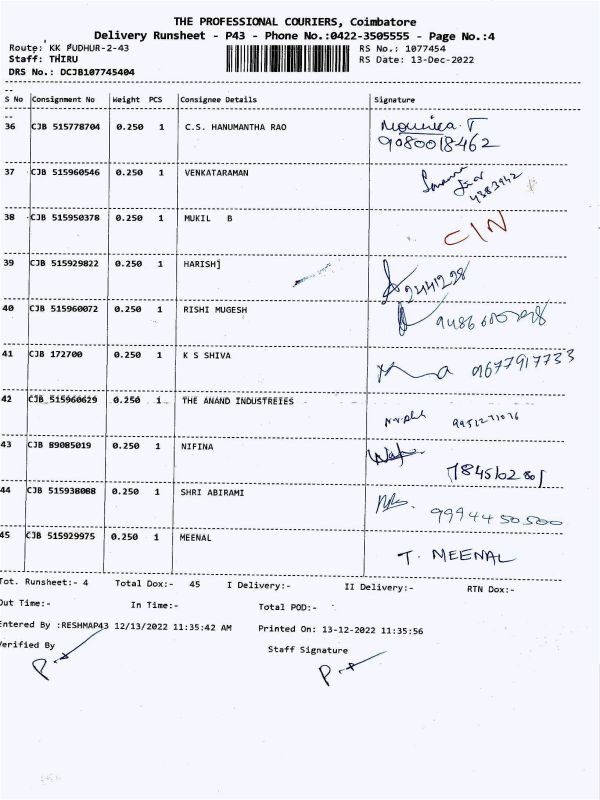 THE PROFESSIONAL COURIERS, Coimbatore
Delivery Runsheet - P43 - Phone No.:0422-3505555 - Page No.:4
Route: KK PUDHUR-2-43 RS No.: 1077454
Staff: THIRU RS Date: 13-Dec-2022
DRS No.: DCJB107745404
S No Consignment No Weight PCS Consignee Details Signature
36 CJB 515778704 0.250 1 C.S. HANUMANTHA RAO Mounica. T
9080018462
37 CJB 515960546 0.250 1 VENKATARAMAN
4383942
38 CJB 515950378 0.250 1 MUKIL B C/N
39 CJB 515929822 0.250 1 HARISH]
40 CJB 515960072 0.250 1 RISHI MUGESH
41 CJB 172700 0.250 1 K S SHIVA 9677917733
42 CJB 515960629 0.250 1 THE ANAND INDUSTREIES
43 CJB 89085019 0.250 1 NIFINA
44 CJB 515938088 0.250 1 SHRI ABIRAMI 9994450500
45 CJB 515929975 0.250 1 MEENAL T. MEENAL
Tot. Runsheet:- 4 Total Dox:- 45 I Delivery:- II Delivery:- RTN Dox:-
Out Time:- In Time:- Total POD:-
Entered By :RESHMAP43 12/13/2022 11:35:42 AM Printed On: 13-12-2022 11:35:56
Verified By Staff Signature